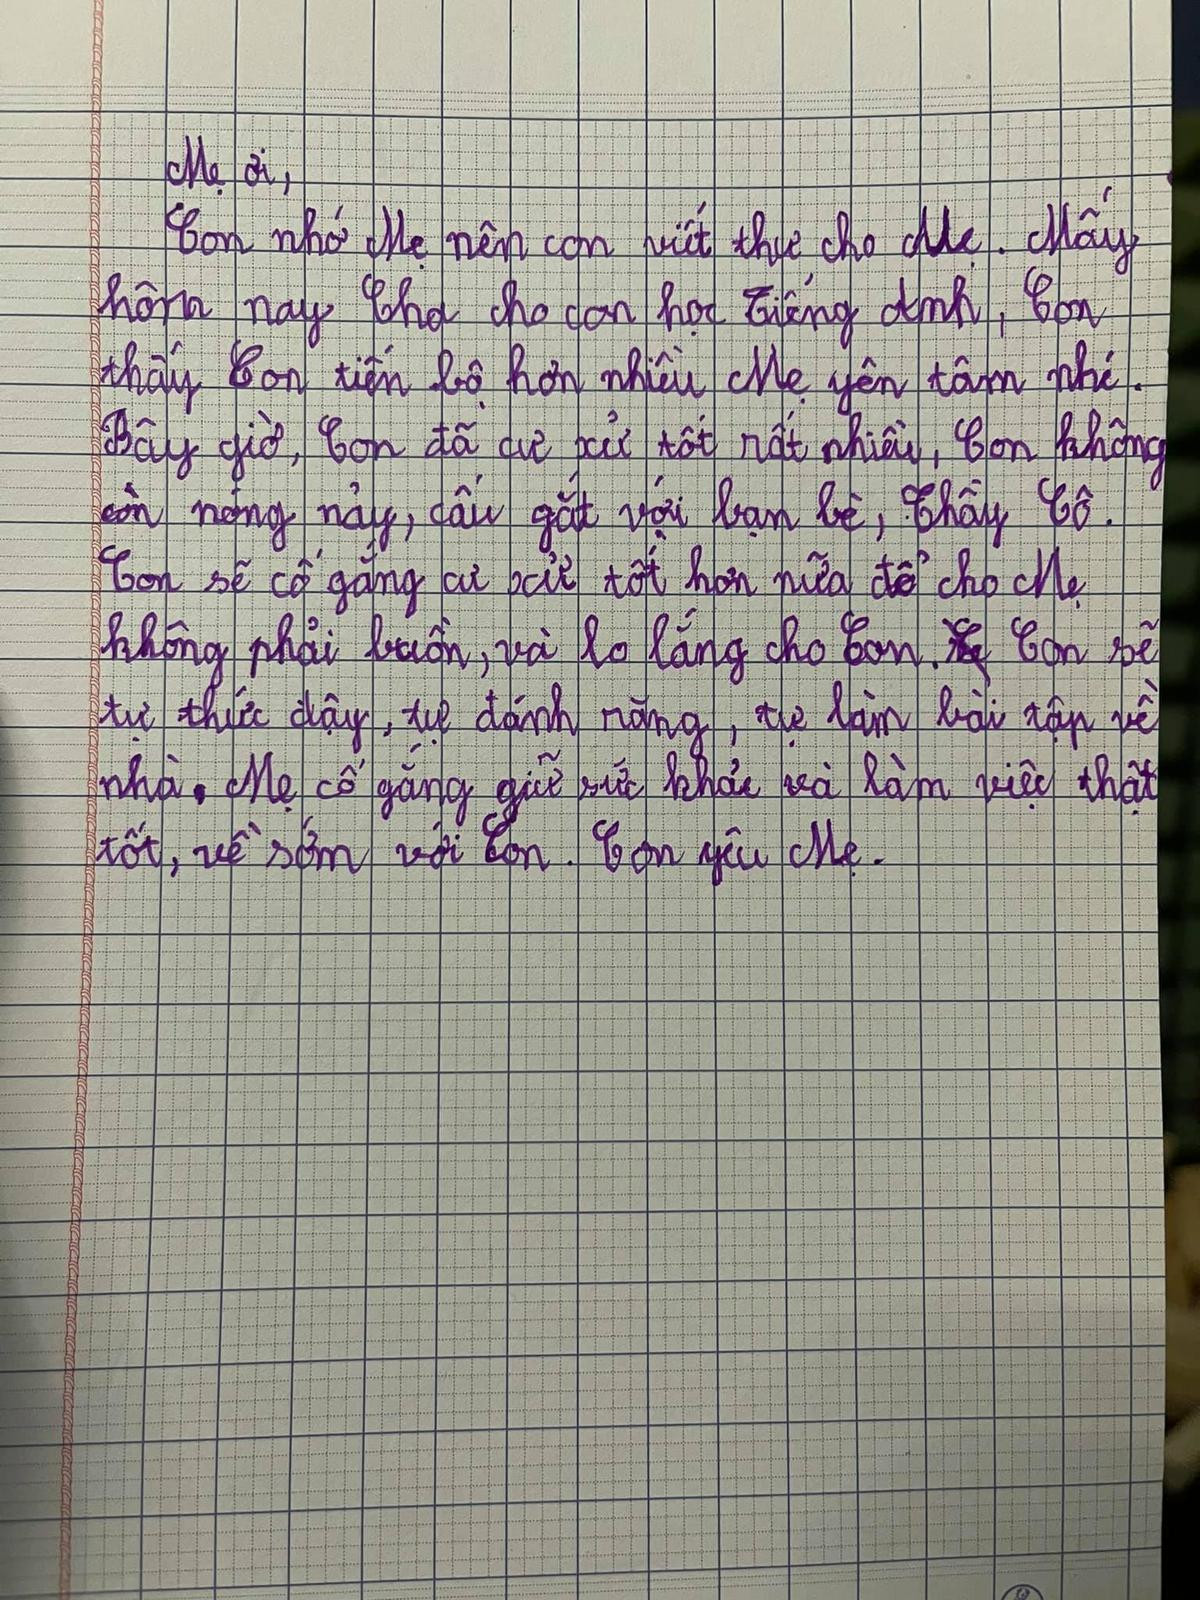 Mẹ ơi,
Con nhớ Mẹ nên con viết thư cho Mẹ. Mấy
hôm nay Cha cho con học Tiếng Anh, Con
thấy Con tiến bộ hơn nhiều Mẹ yên tâm nhé.
Bây giờ, Con đã cư xử tốt rất nhiều, Con không
còn nóng nảy, cấu gắt với bạn bè, Thầy Cô.
Con sẽ cố gắng cư xử tốt hơn nữa để cho Mẹ
không phải buồn, và lo lắng cho Con. Con sẽ
tự thức dậy, tự đánh răng, tự làm bài tập về
nhà. Mẹ cố gắng giữ sức khỏe và làm việc thật
tốt, về sớm với Con. Con yêu Mẹ.